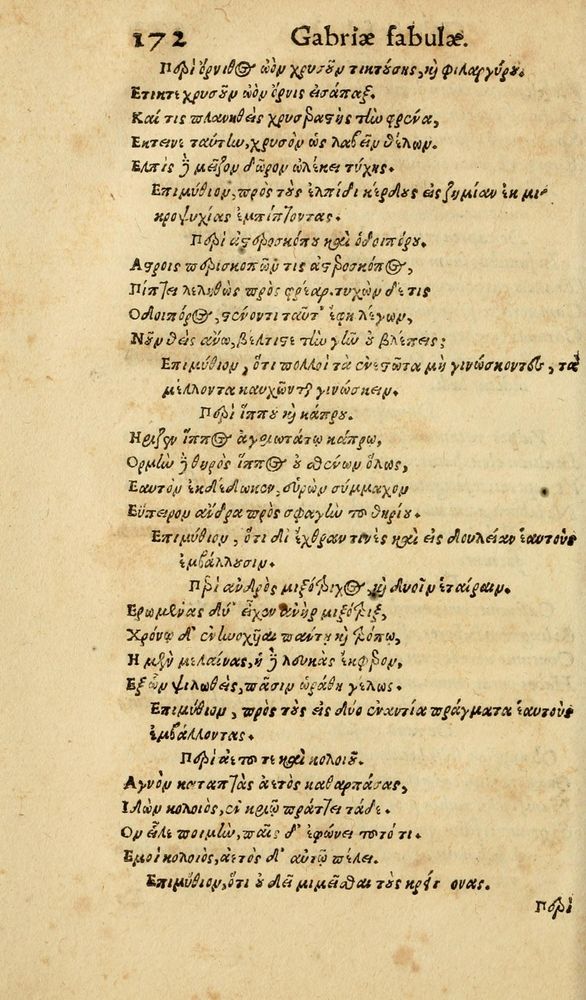 172 Gabriæ fabulæ.
Περὶ ὄρνιθος ὠὸν χρυσοῦν τικτούσης, καὶ φιλαργύρου.
Ετικτε χρυσοῦν ὠὸν ὄρνις εἰσάπαξ.
Καί τις πλανηθεὶς χρυσεραστὴς τὴν φρένα,
Εκτεινε ταύτην, χρυσὸν ὡς λαβεῖν θέλων.
Ελπὶς δὲ μεῖζον δῶρον ὠλέκει τύχης.
Επιμύθιον, πρὸς τοὺς ἐλπίδι κέρδους εἰς ζημίαν ἐκ μι-
κροψυχίας ἐμπίπτοντας.
Περὶ ἀστροσκόπου καὶ ὁδοιπόρου.
Αστροις περισκοπῶν τις ἀστροσκόπος,
Πίπτει λεληθὼς πρὸς φρέαρ. τυχὼν δέ τις
Οδοιπόρος, στένοντι ταῦτ' ἔφη λέγων,
Νοῦν θεὶς ἄνω, βέλτιστε τὴν γῆν οὐ βλέπεις;
Επιμύθιον, ὅτι πολλοὶ τὰ ἐνεστῶτα μὴ γινώσκοντες, τὰ
μέλλοντα καυχῶνται γινώσκειν.
Περὶ ἵππου καὶ κάπρου.
Ηριζεν ἵππος ἀγριωτάτῳ κάπρῳ,
Ορμὴν δὲ θηρὸς ἵππος οὐ σθένων ὅλως,
Εαυτὸν ἐκδέδωκεν, εὑρὼν σύμμαχον
Εὔπειρον ἄνδρα πρὸς σφαγὴν τοῦ θηρίου.
Επιμύθιον, ὅτι δι' ἔχθραν τινὲς καὶ εἰς δουλείαν ἑαυτοὺς
ἐμβάλλουσιν.
Περὶ ἀνδρὸς μιξότριχος, καὶ δυοῖν ἑταίραιν.
Ερωμένας δύ' εἶχεν ἀνὴρ μιξόθριξ,
Χρόνῳ δ' παντὶ καὶ τρόπῳ,
Η μὲν μελαίνας, ἡ δὲ λευκὰς
Εξ ὧν ψιλωθεὶς, πᾶσιν ὡράθη γέλως.
Επιμύθιον, πρὸς τοὺς εἰς δύο ἐναντία πράγματα ἑαυτοὺς
ἐμβάλλοντας.
Περὶ ἀετοῦ τε καὶ κολοιοῦ.
Αγνὸν καταπτὰς ἀετὸς καθαρπάσας,
Ιδὼν κολοιὸς, ἐν κριῷ πράττει τάδε.
Ον εἷλε ποιμὴν, παῖς δ' ἐφώνει ποτό τι.
Εμοὶ κολοιὸς, ἀετὸς δ' αὑτῷ πέλει.
Επιμύθιον, ὅτι οὐ δεῖ μιμεῖσθαι τοὺς κρείττονας.
Περὶ